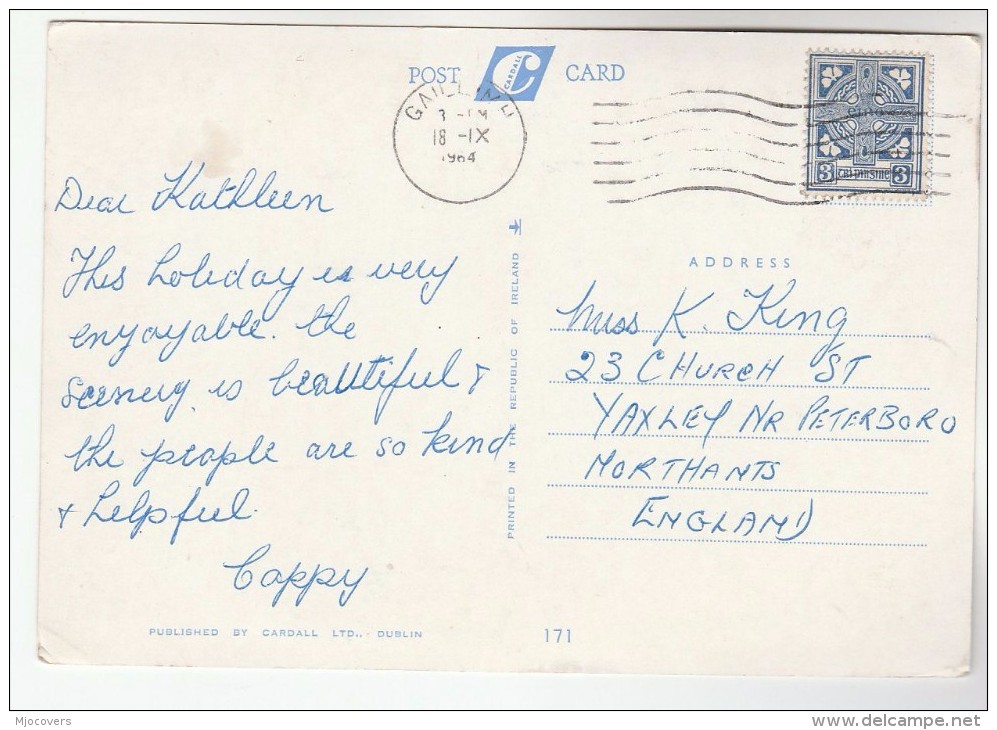 POST CARDALL CARD
GAILLIMH
3 - PM
18 - IX
1964
3 TRI PINGINE 3
Dear Kathleen
This holiday is very
enjoyable. the
scenery is beautiful &
the people are so kind
& helpful.
Cappy
PRINTED IN THE REPUBLIC OF IRELAND
ADDRESS
Miss K. King
23 CHURCH ST
YAXLEY NR PETERBORO
NORTHANTS
ENGLAND
PUBLISHED BY CARDALL LTD., DUBLIN
171
Mjocovers
delcampe.net